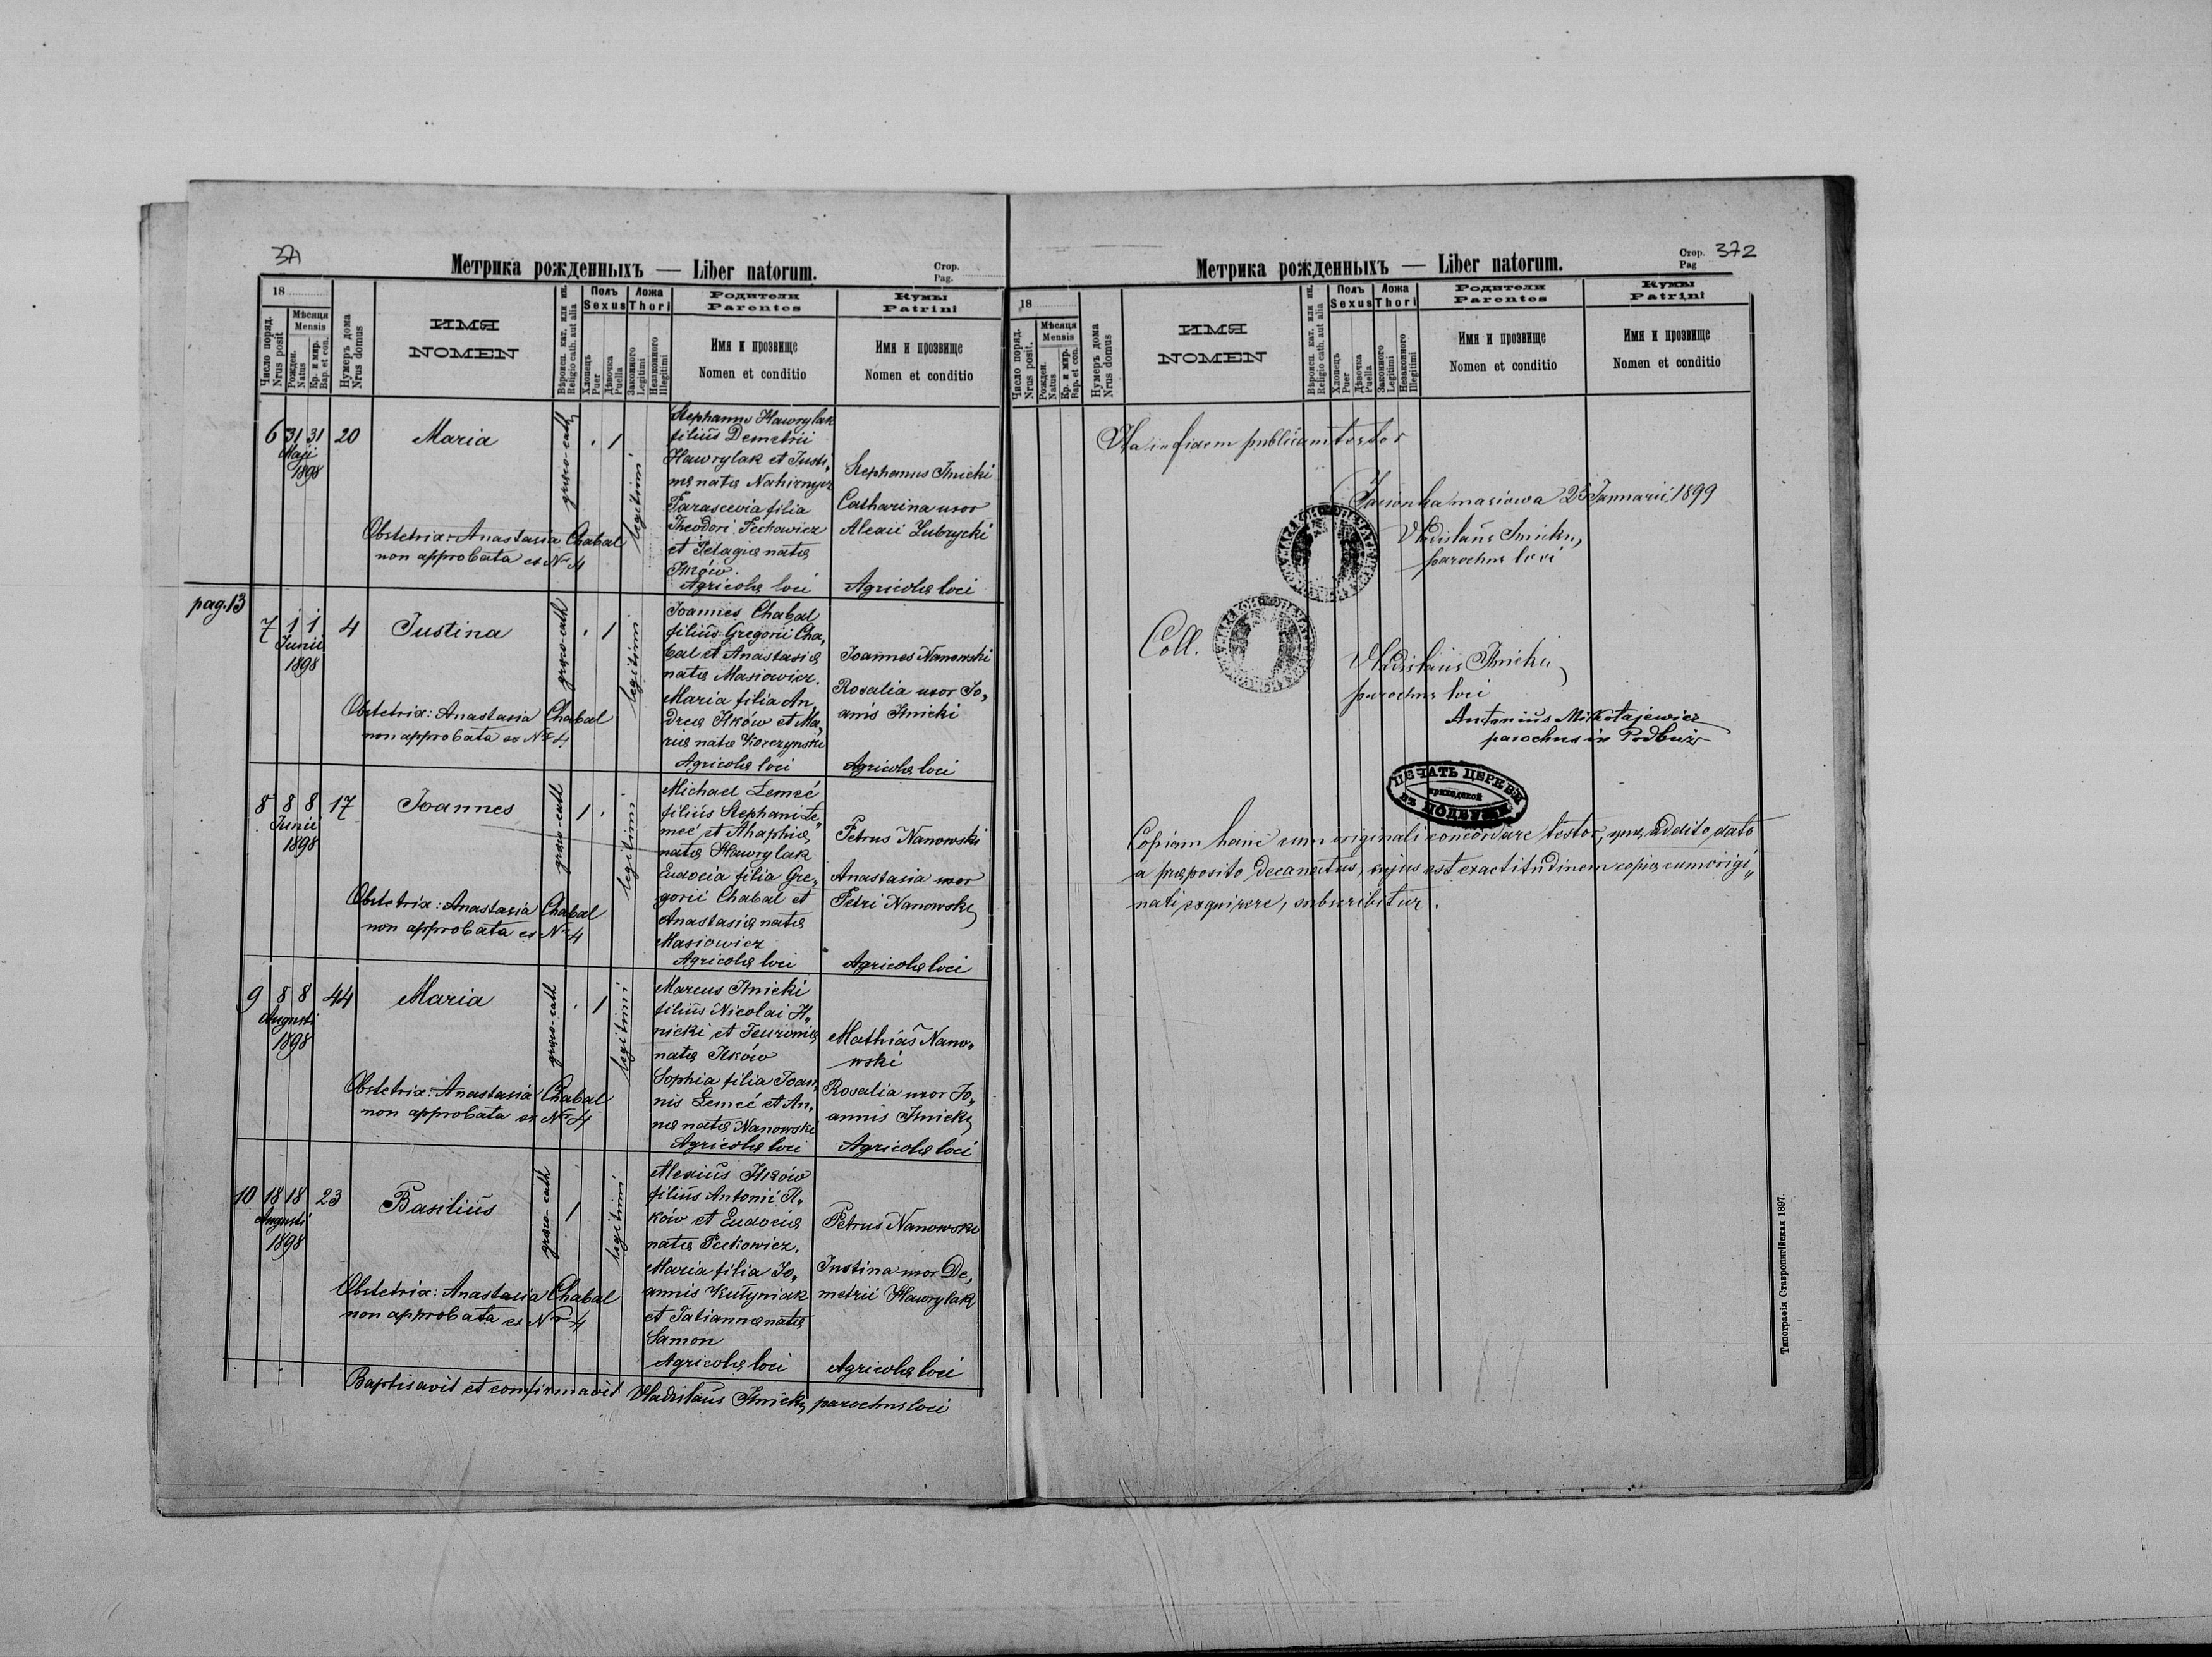 371
Метрика рожденныхъ — Liber natorum.
Стор.
Pag.
18
Число поряд.
Nrus posit
Мѣсяця
Mensis
Рожден.
Natus
Кр. и мѵр.
Bap. et con.
Нумеръ дома
Nrus domus
ИМЯ
NOMEN
Вѣроисп. кат. или ин.
Religio cath. aut alia
Полъ
Sexus
Хлопець
Puer
Дѣвочка
Puella
Ложа
Thori
Законного
Legitimi
Незаконного
Illegitimi
Родители
Parentes
Имя и прозвище
Nomen et conditio
Кумы
Patrini
Имя и прозвище
Nomen et conditio
6 31 31 20 Maria
Maji
1898
graeco-cath
1
legitimi
Obstetrix: Anastasia Chabal
non approbata ex Nr 4
Stephanus Hawrylak
filius Demetrii
Hawrylak et Justi„
næ natæ Nahirnyez
Parascevia filia
Theodori Pećkowicz
et Pelagiæ natæ
Ilków.
Agricolæ loci
Stephanus Ilnicki
Catharina uxor
Alexii Zubrycki
Agricolæ loci
pag. 13
7 1 1 4 Justina
Junii
1898
graeco-cath
1
legitimi
Obstetrix: Anastasia Chabal
non approbata ex Nr 4
Joannes Chabal
filius Gregorii Cha„
bal et Anastasiæ
natæ Masiowicz.
Maria filia An„
dreæ Ilków et Ma„
riæ natæ Korczynski
Agricolæ loci
Joannes Nanowski
Rosalia uxor Jo„
anis Ilnicki
Agricolæ loci
8 8 8 17 Joannes
Junii
1898
graeco-cath
1
legitimi
Obstetrix: Anastasia Chabal
non approbata ex Nr 4
Michael Lemeć
filius Stephani Le„
meć et Ahaphiæ
natæ Hawrylak
Eudocia filia Gre„
gorii Chabal et
Anastasiæ natæ
Masiowicz
Agricolæ loci
Petrus Nanowski
Anastasia uxor
Petri Nanowski
Agricolæ loci
9 8 8 44 Maria
Augusti
1898
graeco-cath
1
legitimi
Obstetrix: Anastasia Chabal
non approbata ex Nr 4
Marcus Ilnicki
filius Nicolai Il„
nicki et Feuroniæ
natæ Ilków
Sophia filia Joan„
nis Lemeć et An„
næ natæ Nanowski
Agricolæ loci
Mathias Nano„
wski
Rosalia uxor Jo„
annis Ilnicki
Agricolæ loci
10 18 18 23 Basilius
Augusti
1898
graeco-cath
1
legitimi
Obstetrix: Anastasia Chabal
non approbata ex Nr 4
Alexius Ilków
filius Antonii Il„
ków et Eudociæ
natæ Pećkowicz.
Maria filia Jo„
annis Kutyniak
et Tatiannæ natæ
Samon
Agricolæ loci
Petrus Nanowski
Justina uxor De„
metrii Hawrylak
Agricolæ loci
Baptisavit et confirmavit Vladislaus Ilnicki, parochus loci
Метрика рожденныхъ — Liber natorum.
Стор.
Pag
372
18
Число поряд.
Nrus posit.
Мѣсяця
Mensis
Рожден.
Natus
Кр. и мѵр.
Bap. et con.
Нумеръ дома
Nrus domus
ИМЯ
NOMEN
Вѣроисп. кат. или ин.
Religio cath. aut alia
Полъ
Sexus
Хлопець
Puer
Дѣвочка
Puella
Ложа
Thori
Законного
Legitimi
Незаконного
Illegitimi
Родители
Parentes
Имя и прозвище
Nomen et conditio
Кумы
Patrini
Имя и прозвище
Nomen et conditio
Ita in fidem publicam testor
Jasionka masiowa 25 Januarii 1899
Vladislaus Ilnicki,
parochus loci
Coll.
Vladislaus Ilnicki
parochus loci
Antonius Mikołajewicz
parochus in Podbuż
ПЕЧАТЬ ЦЕРКВИ
приходской
въ ПОДБУЖИ
Copiam hanc cum originali concordare testor, addito, dato
a præposito decanatus, cujus est exactitudinem copiæ cum origi„
nali exquirere, subscribitur.
Типографія Ставропигійская 1897.